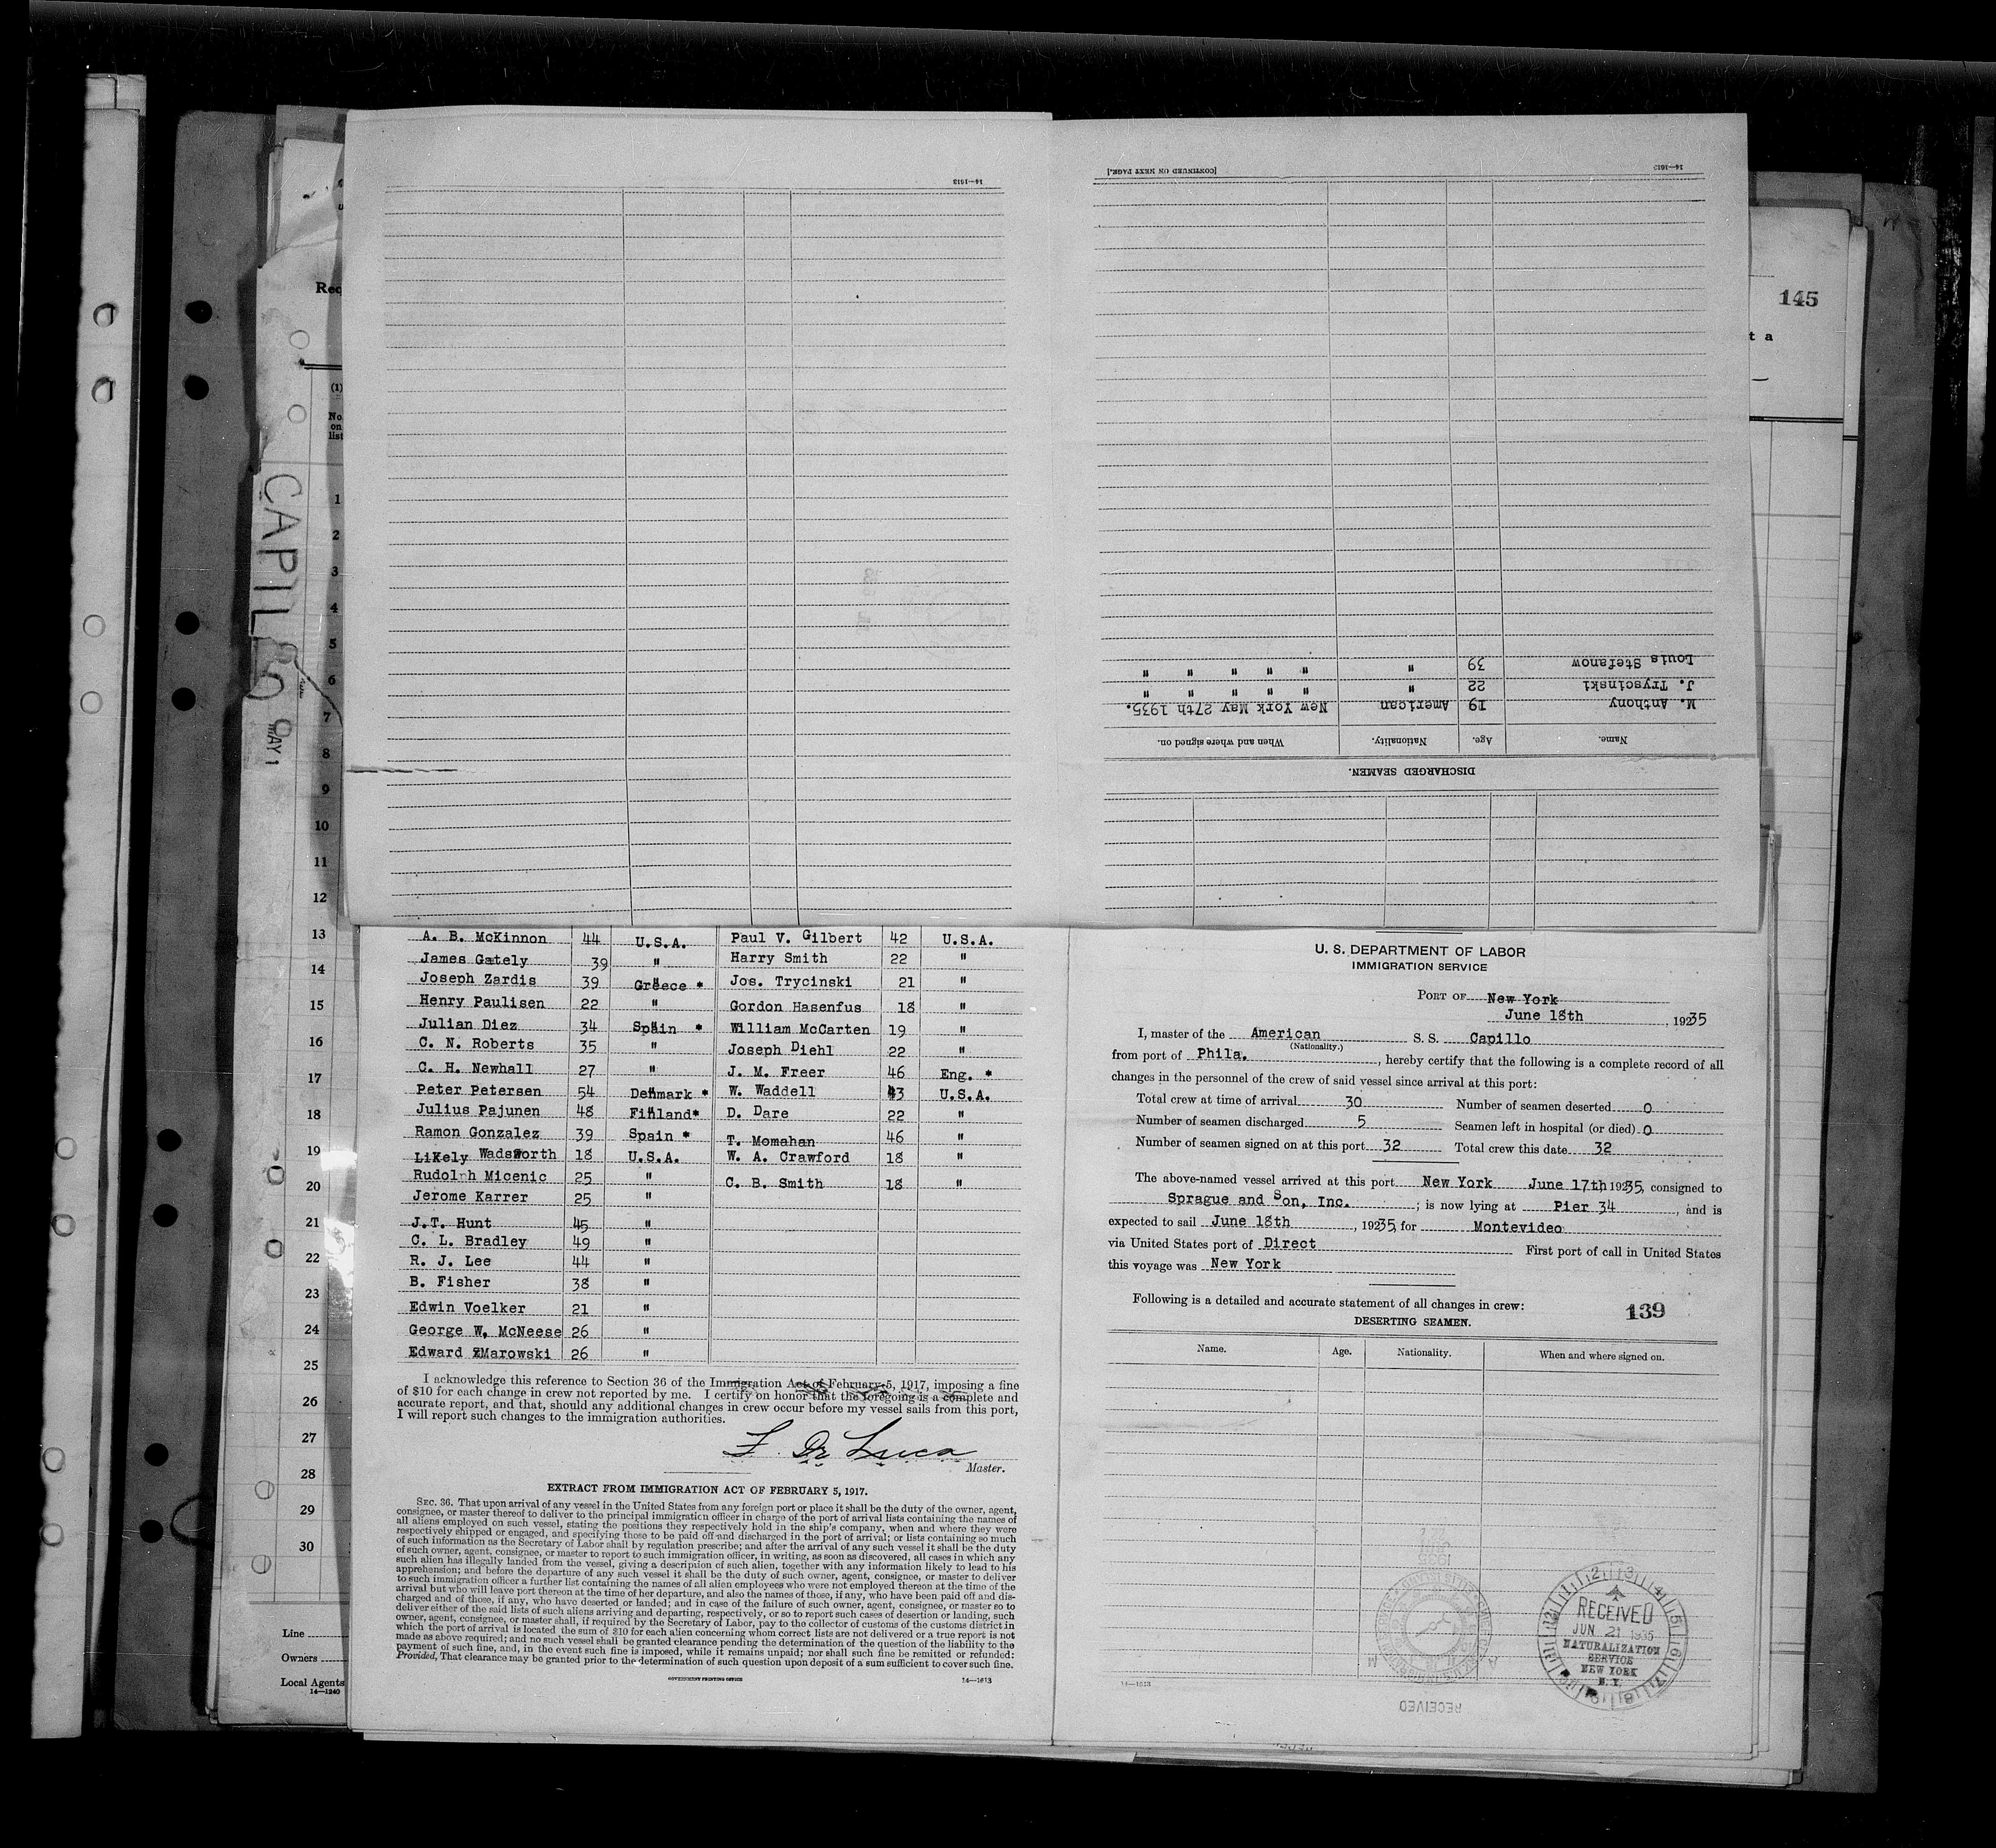 14—1613
[CONTINUED ON NEXT PAGE.]
14—1613
145
t a
Req
(1)
No.
on
list
CAPILLO
MAY 1
1
2
3
4
5
6
7
8
9
10
11
12
13
14
15
16
17
18
19
20
21
22
23
24
25
26
27
28
29
30
Line
Owners
Local Agents
14—1240
DISCHARGED SEAMEN.
Name. Age. Nationality. When and where signed on.
M. Anthony 19 American New York May 27th 1935.
J. Tryscinski 22 " " " " " "
Louis Stefanow 39 " " " " " "
A. B. McKinnon 44 U.S.A. Paul V. Gilbert 42 U.S.A.
James Gately 39 " Harry Smith 22 "
Joseph Zardis 39 Greece * Jos. Trycinski 21 "
Henry Paulisen 22 " Gordon Hasenfus 18 "
Julian Diez 34 Spain * William McCarten 19 "
C. N. Roberts 35 " Joseph Diehl 22 "
C. H. Newhall 27 " J. M. Freer 46 Eng. *
Peter Petersen 54 Denmark * W. Waddell 43 U.S.A.
Julius Pajunen 48 Finland* D. Dare 22 "
Ramon Gonzalez 39 Spain * T. Momahan 46 "
Likely Wadsworth 18 U.S.A. W. A. Crawford 18 "
Rudolph Micenic 25 " C. B. Smith 18 "
Jerome Karrer 25 "
J.T. Hunt 45 "
C. L. Bradley 49 "
R. J. Lee 44 "
B. Fisher 38 "
Edwin Voelker 21 "
George W. McNeese 26 "
Edward ZMarowski 26 "
I acknowledge this reference to Section 36 of the Immigration Act of February 5, 1917, imposing a fine
of $10 for each change in crew not reported by me. I certify on honor that the foregoing is a complete and
accurate report, and that, should any additional changes in crew occur before my vessel sails from this port,
I will report such changes to the immigration authorities.
F. De Luca
Master.
EXTRACT FROM IMMIGRATION ACT OF FEBRUARY 5, 1917.
SEC. 36. That upon arrival of any vessel in the United States from any foreign port or place it shall be the duty of the owner, agent,
consignee, or master thereof to deliver to the principal immigration officer in charge of the port of arrival lists containing the names of
all aliens employed on such vessel, stating the positions they respectively hold in the ship's company, when and where they were
respectively shipped or engaged, and specifying those to be paid off and discharged in the port of arrival; or lists containing so much
of such information as the Secretary of Labor shall by regulation prescribe; and after the arrival of any such vessel it shall be the duty
of such owner, agent, consignee, or master to report to such immigration officer, in writing, as soon as discovered, all cases in which any
such alien has illegally landed from the vessel, giving a description of such alien, together with any information likely to lead to his
apprehension; and before the departure of any such vessel it shall be the duty of such owner, agent, consignee, or master to deliver
to such immigration officer a further list containing the names of all alien employees who were not employed thereon at the time of the
arrival but who will leave port thereon at the time of her departure, and also the names of those, if any, who have been paid off and dis-
charged and of those, if any, who have deserted or landed; and in case of the failure of such owner, agent, consignee, or master so to
deliver either of the said lists of such aliens arriving and departing, respectively, or so to report such cases of desertion or landing, such
owner, agent, consignee, or master shall, if required by the Secretary of Labor, pay to the collector of customs of the customs district in
which the port of arrival is located the sum of $10 for each alien concerning whom correct lists are not delivered or a true report is not
made as above required; and no such vessel shall be granted clearance pending the determination of the question of the liability to the
payment of such fine, and, in the event such fine is imposed, while it remains unpaid; nor shall such fine be remitted or refunded:
Provided, That clearance may be granted prior to the determination of such question upon deposit of a sum sufficient to cover such fine.
GOVERNMENT PRINTING OFFICE 14—1613
U. S. DEPARTMENT OF LABOR
IMMIGRATION SERVICE
PORT OF New York
June 18th, 1935
I, master of the American S. S. Capillo
(Nationality.)
from port of Phila., hereby certify that the following is a complete record of all
changes in the personnel of the crew of said vessel since arrival at this port:
Total crew at time of arrival 30 Number of seamen deserted 0
Number of seamen discharged 5 Seamen left in hospital (or died) 0
Number of seamen signed on at this port 32 Total crew this date 32
The above-named vessel arrived at this port New York June 17th 1935, consigned to
Sprague and Son, Inc. ; is now lying at Pier 34, and is
expected to sail June 18th, 1935, for Montevideo
via United States port of Direct First port of call in United States
this voyage was New York
Following is a detailed and accurate statement of all changes in crew:
139
DESERTING SEAMEN.
Name. Age. Nationality. When and where signed on.
RECEIVED
JUN 21 1935
NATURALIZATION
SERVICE
NEW YORK
N.Y.
14—1613
RECEIVED